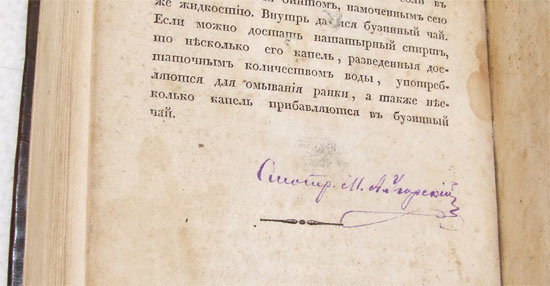 бинтомъ, намоченнымъ сею
же жидкостію. Внутрь дается бузинный чай.
Если можно достать нашатырный спиртъ,
то нѣсколько его капель, разведенныя дос-
таточнымъ количествомъ воды, употреб-
ляются для омыванія ранки, а также нѣс-
колько капель прибавляются въ бузинный
чай.
Смотр. М. А.